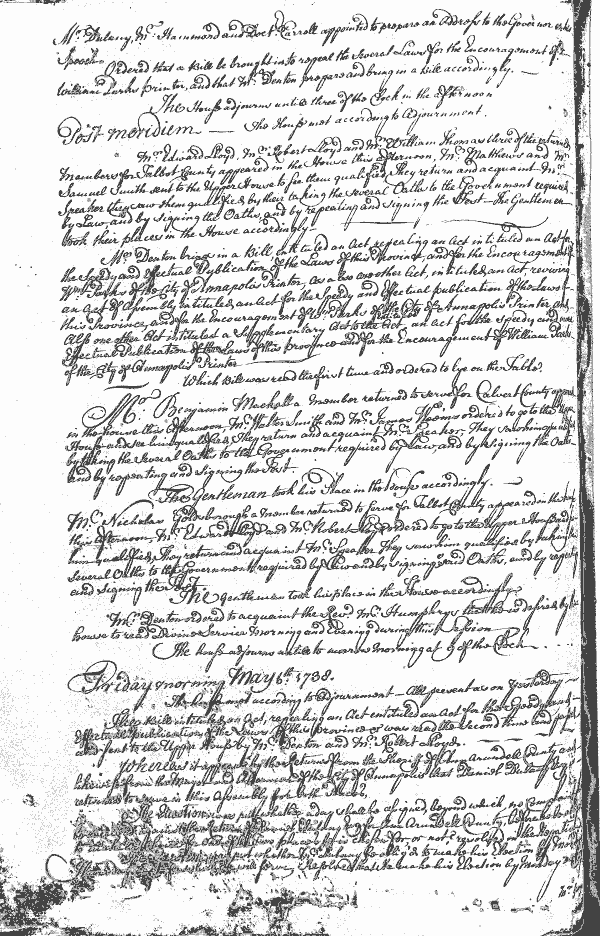 Mr. Dulany, Mr. Hammond and Doct. Carroll appointed to prepare an Address to the Governor
Speech.
Ordered that a Bill be brought in to repeal the Several Laws for the Encouragement of
William Parks Printer, and that Mr. Denton prepare and bring in a bill accordingly.
The House adjourns until three of the Clock in the afternoon
Post meridiem — The House met according to Adjournment.
Mr. Edward Lloyd, Mr. Robert Lloyd and Mr. William Thomas three of the returned
Members for Talbot County appeared in the House this afternoon, Mr. Matthews and Mr.
Samuel Smith sent to the Upper House to see them qualified, They return and acquaint Mr.
Speaker they saw them qualified by their taking the Several Oaths to the Government required
by Law, and by Signing the Oaths, and by repeating and Signing the Test — the Gentlemen
took their places in the House accordingly —
Mr. Denton brings in a Bill entituled an Act repealing an Act intituled an Act for
the Speedy and effectual Publication of the Laws of this Province, and for the Encouragement
Wm. Parks of the City of Annapolis Printer, As a one other Act, intituled an Act, reviving
an Act of Assembly intituled an Act for the Speedy and effectual publication of the Laws of
this Province, and for the Encouragement of Wm. Parks of the City of Annapolis Printer and
Also one other Act intituled a Supplementary Act to the Act, an Act for the Speedy and
effectual Publication of the Laws of this province and for the Encouragement of William Parks
of the City of Annapolis Printer
Which Bill was read the first time and ordered to lye on the Table.
Mr. Benjamin Mackall a Member returned to serve for Calvert County
in the House this Afternoon, Mr. Walter Smith and Mr. James Weems ordered to go to the
House and see him qualified, They return and acquaint Mr. Speaker, They saw him
by taking the Several Oaths to the Government required by Law, and by Signing the Oaths
and by repeating and Signing the Test.
The Gentleman took his Place in the House accordingly. —
Mr. Nicholas Goldsborough a Member returned to serve for Talbot County appeared in the
this Afternoon, Mr. Edward Lloyd and Mr. Robert Lloyd ordered to go to the Upper House and
him qualified, They return and acquaint Mr. Speaker They saw him qualified by taking
Several Oaths to the Government required by Law and by Signing said Oaths, and by
and Signing the Test.
The Gentleman took his place in the House accordingly
Mr. Denton ordered to acquaint the Revd. Mr. Humphrys that he is desired by
house to read Divine Service Morning and Evening during this Session
The house adjourns until to morrow Morning at 9 of the Clock
Friday morning May 1738.
The house met according to Adjournment — All present as on yesterday —
The Bill intituled an Act, repealing an Act entituled an Act for the Speedy and
effectual publication of the Laws of this Province was read the Second time and
and sent to the Upper House by Mr. Denton and Mr. Robert Lloyd.
Whereas it appears by the Return from the Sheriff of Ann Arundell County
likewise from the Mayor and Aldermen of the City of Annapolis that Daniel Dulany Esqr.
returned to serve in this Assembly for both Places,
The Question was put whether a day shall be assigned beyond which, no
Ann Arundell County
or not, resolved in the Negative
put whether Mr. Dulany be oblig'd to make his Election
Resolved that he make his Election by Monday